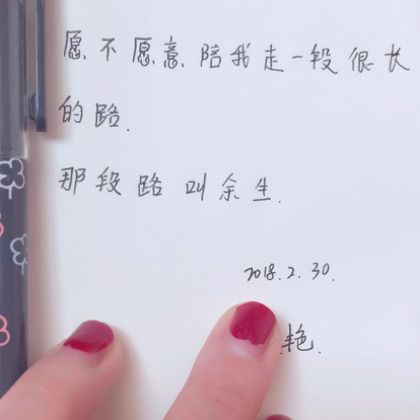 愿不愿意陪我走一段很长
的路.
那段路叫余生.
2018.2.30.
艳.